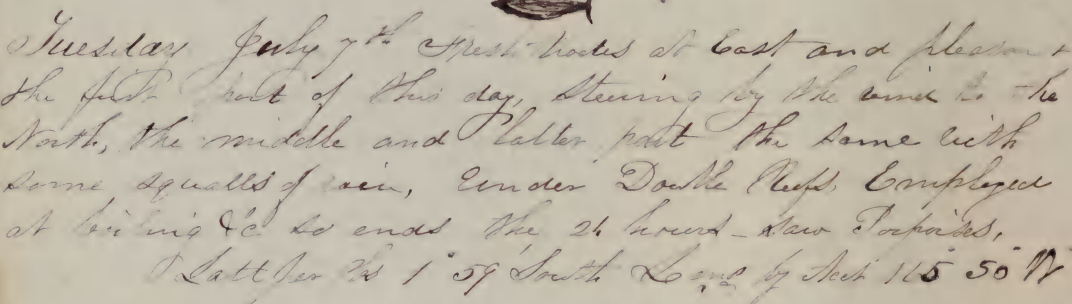 Tuesday July 7th Fresh trades at East and pleasant
the first part of this day, Steering by the wind to the
North, the middle and latter part the same with
some squalls of rain, Under Double Reefs, Employed
at boiling &c so ends the 24 hours - saw Porpoises,
Latt 1° 59 South Long by 115 50 W